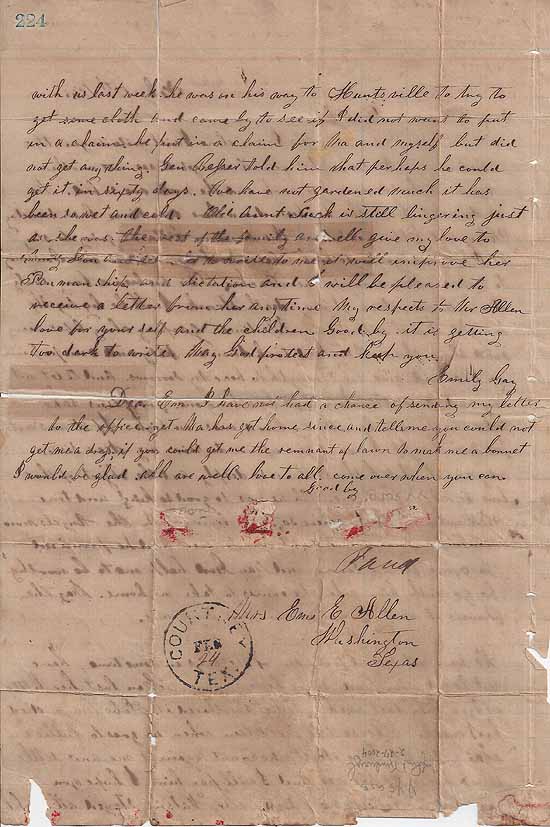 224
with us last week he was on his way to Huntsville to try to
get some cloth and came by to see if I did not want to put
in a claim he put in a claim for Ma and myself but did
not get any thing. Gen Besser told him that perhaps he could
get it in sixty days. We have not gardened much it has
been so wet and cold. Old Aunt Suck is still lingering just
as she was. The rest of the family are well give my love to
Lou and to write to me it will improve her
Penmanship and dictation and I will be pleased to
receive a letter from her any time My respects to Mr Allen
love for your self and the children Good by it is getting
too dark to write May God protect and keep you
Emily Gay
Dear Em I have not had a chance of sending my letter
to the office yet Ma has got home since and tells me you could not
get me a dress, if you could get me the remnant of lawn to make me a bonnet
I would be glad all are well love to all, come over when you can
Good by
Paid
Mrs Em E Allen
Washington
Texas
COURTNEY
FEB
24
TEX